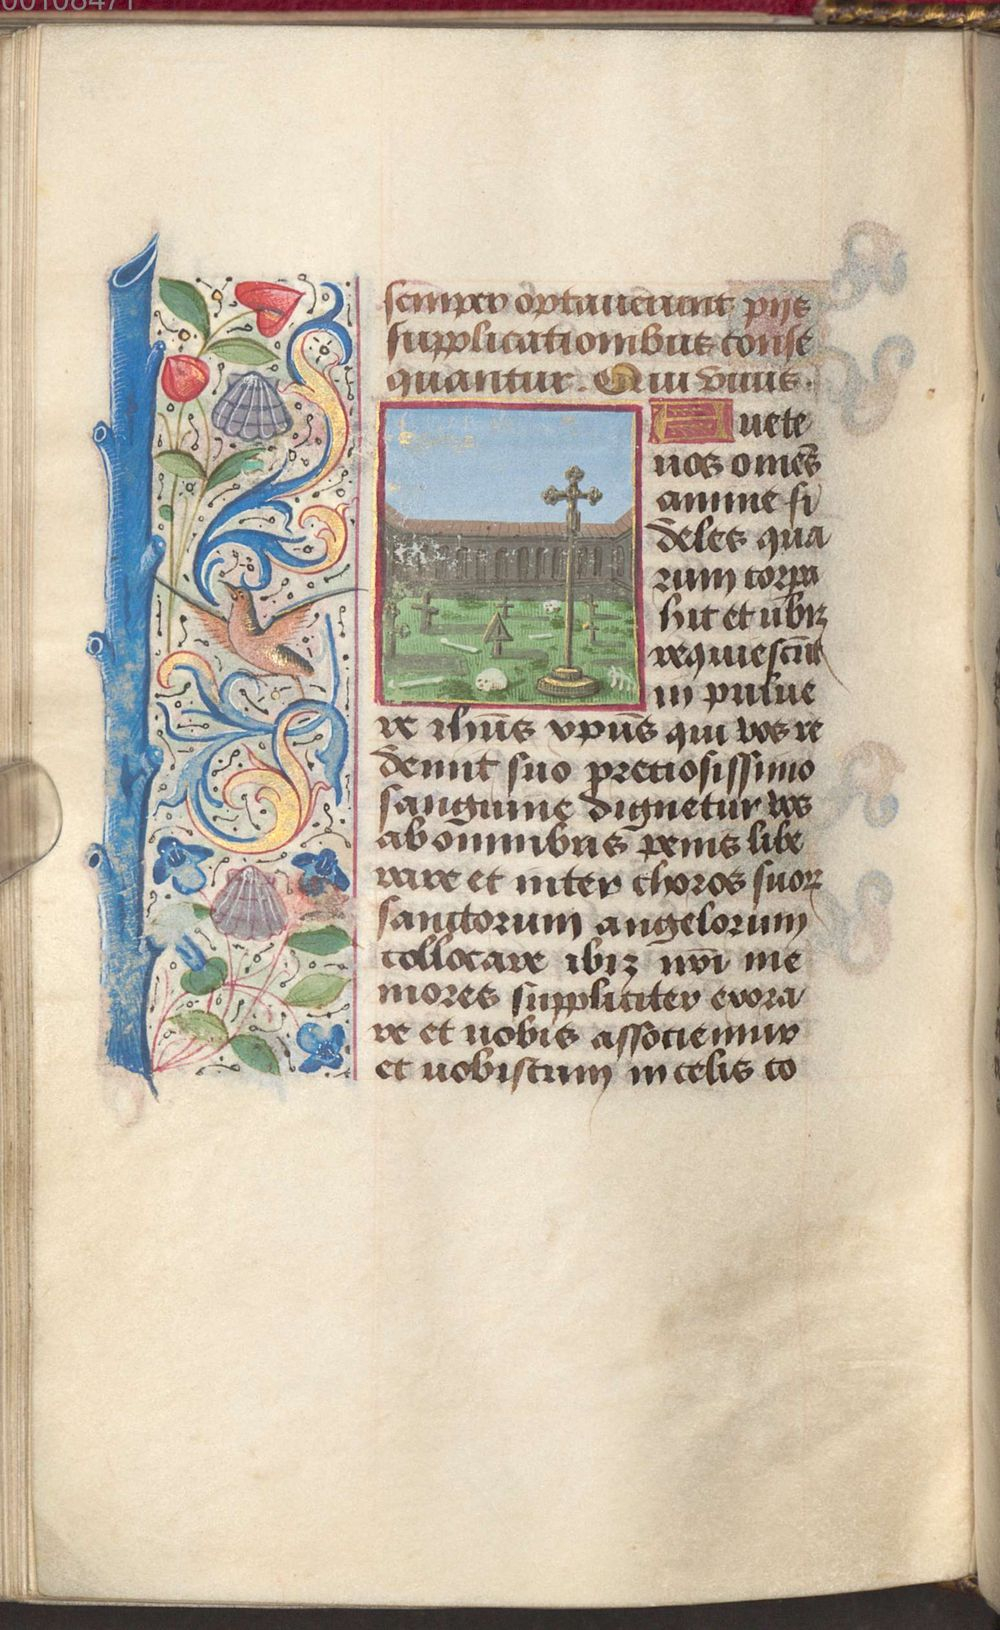 00108471
semper optauerunt pijs
supplicationibus conse
quantur. Qui viuis.
Auete
uos om̄es
anime fi
deles qua
rum corpa
hic et ubiꝫ
requiescūt
in pulue
re ihūs xpūs qui vos re
demit suo preciosissimo
sanguine dignetur vos
ab omnibus penis libe
rare et inter choros suoꝝ
sanctorum angelorum
collocare ibiꝫ nr̄i me
mores suppliciter exora
re et uobis associemur
et uobiscum in celis co